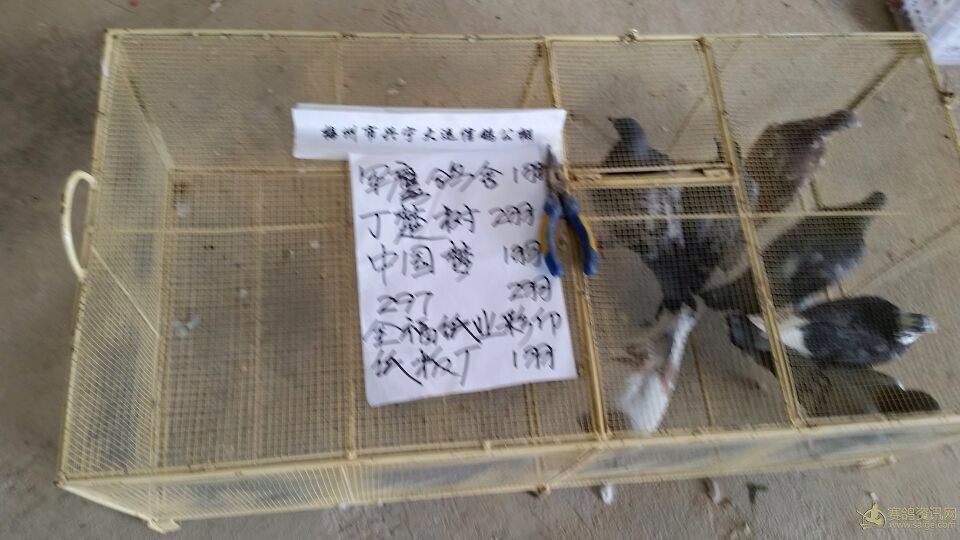 梅州市兴宁大运信鸽公棚
军鹰鸽舍 1羽
丁楚树 2羽
中国梦 1羽
297 2羽
全福纸业彩印
纸板厂 1羽
赛鸽资讯网